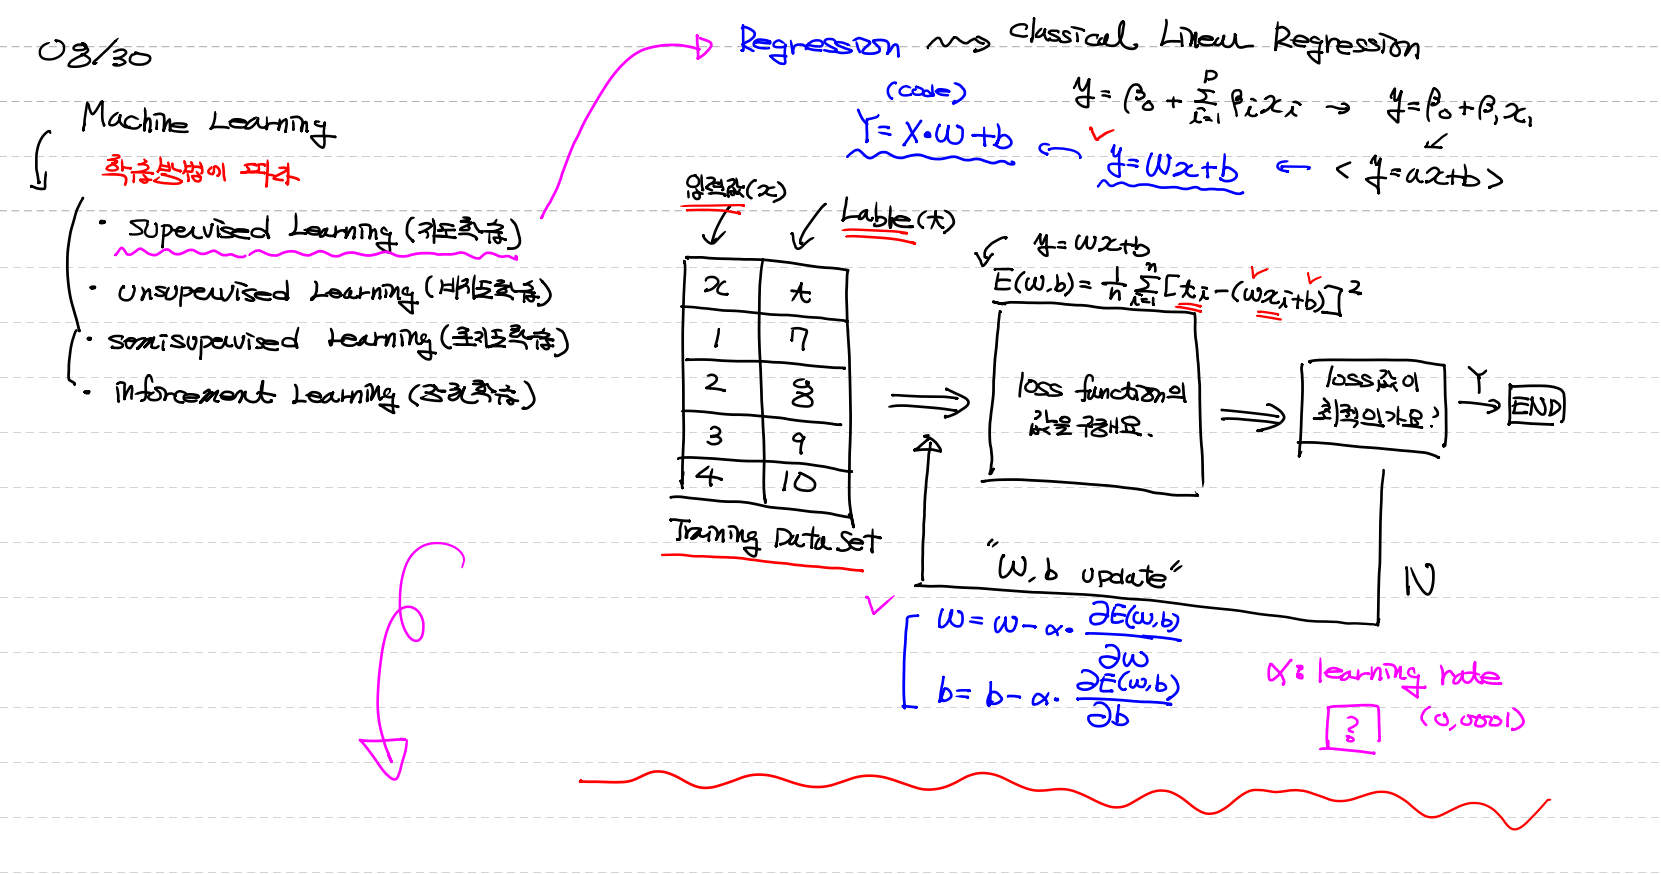 08/30
Machine Learning
학습방법에 따라
· Supervised Learning (지도학습)
· Unsupervised Learning (비지도학습)
· Semisupervised Learning (준지도학습)
· inforcement Learning (강화학습)
Regression ⇝ Classical Linear Regression
y = β₀ + Σ_{i=1}^{p} βᵢxᵢ → y = β₀ + β₁x₁
(code)
Y = X·W + b ← y = Wx+b ← < y = ax+b >
입력값(x)
Lable(t)
x t
1 7
2 8
3 9
4 10
Training Data Set
y = Wx+b
E(W,b) = 1/n Σ_{i=1}^{n} [tᵢ - (Wxᵢ+b)]²
loss function의
값을 구해요.
loss값이
최적인가요?
Y
END
N
"W, b update"
W = W - α · ∂E(W,b)/∂W
b = b - α · ∂E(W,b)/∂b
α: learning rate
? (0,0001)